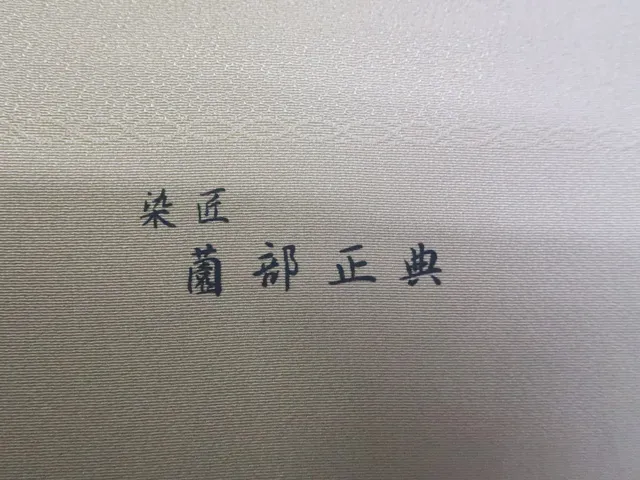 染匠
薗部正典